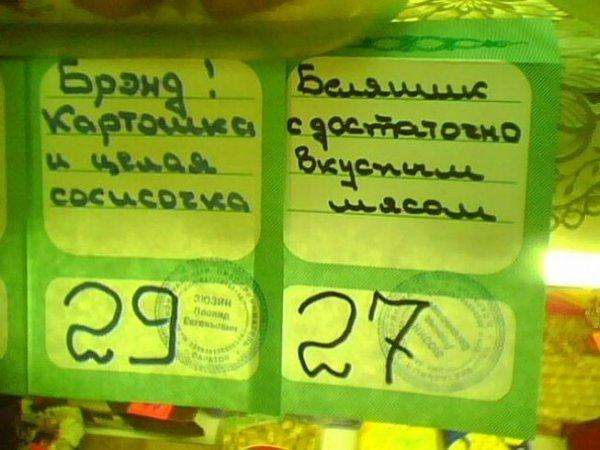 Брэнд!
Картошка
и целая
сосисочка
29
Беляшик
с достаточно
вкусным
мясом
27
Леонид
Евгеньевич
САРАТОВ